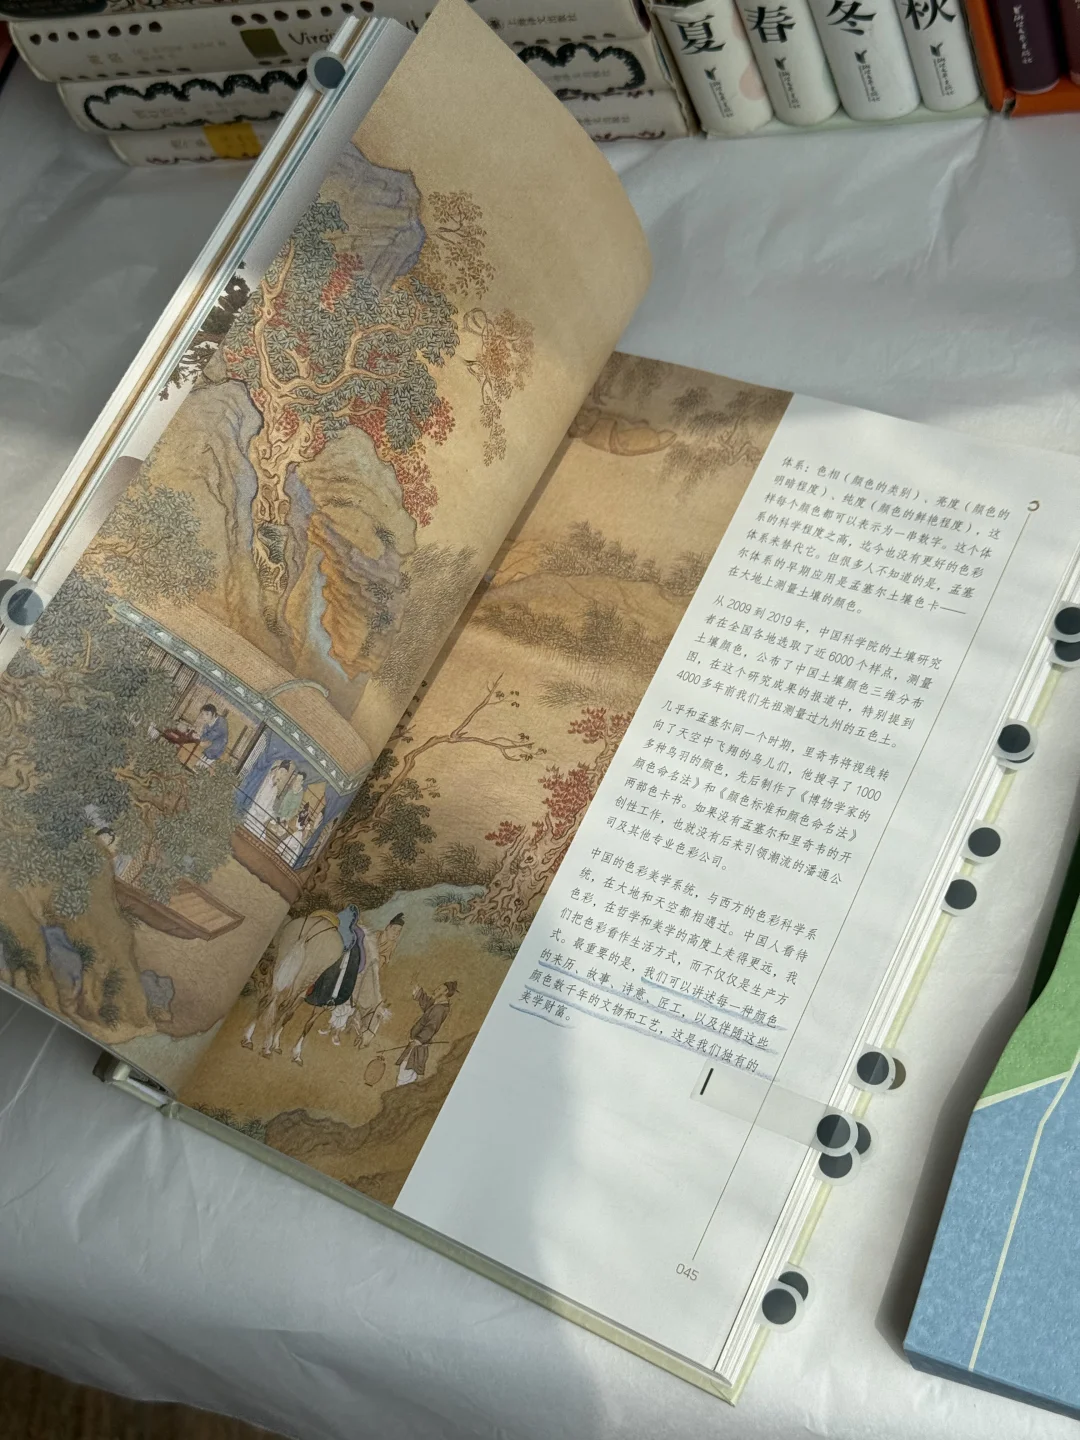 Virgi
夏
春
冬
秋
体系：色相（颜色的类别）、亮度（颜色的
明暗程度）、纯度（颜色的鲜艳程度），这
样每个颜色都可以表示为一串数字。这个体
系的科学程度之高，迄今也没有更好的色彩
体系来替代它。但很多人不知道的是，孟塞
尔体系的早期应用是孟塞尔土壤色卡——
在大地上测量土壤的颜色。
从 2009 到 2019 年，中国科学院的土壤研究
者在全国各地选取了近 6000 个样点，测量
土壤颜色，公布了中国土壤颜色三维分布
图，在这个研究成果的报道中，特别提到
4000 多年前我们先祖测量过九州的五色土。
几乎和孟塞尔同一个时期，里奇韦将视线转
向了天空中飞翔的鸟儿们，他搜寻了 1000
多种鸟羽的颜色，先后制作了《博物学家的
颜色命名法》和《颜色标准和颜色命名法》
两部色卡书。如果没有孟塞尔和里奇韦的开
创性工作，也就没有后来引领潮流的潘通公
司及其他专业色彩公司。
中国的色彩美学系统，与西方的色彩科学系
统，在大地和天空都相遇过。中国人看待
色彩，在哲学和美学的高度上走得更远，我
们把色彩看作生活方式，而不仅仅是生产方
式。最重要的是，我们可以讲述每一种颜色
的来历、故事、诗意、匠工，以及伴随这些
颜色数千年的文物和工艺，这是我们独有的
美学财富。
045